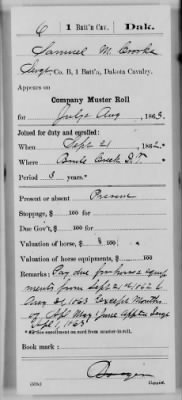 C 1 Batt'n Cav. Dak.
Samuel M. Crooks
Sergt Co. B, 1 Batt'n, Dakota Cavalry.
Appears on
Company Muster Roll
for July & Aug, 1863.
Joined for duty and enrolled:
When Sept 21, 1862.*
Where Bombo Creek D.T.
Period 3 years.*
Present or absent Present
Stoppage, $ 100 for
Due Gov't, $ 100 for
Valuation of horse, $ 100
Valuation of horse equipments, $ 100
Remarks: Pay due for horse & equip
ments from Sept 21st 1862 to
Aug 31, 1863 except months
of Apl May & June Appt'd Sergt
Sept 1, 1863.
*See enrollment on card from muster-in roll.
Book mark:
(858) Copyist.